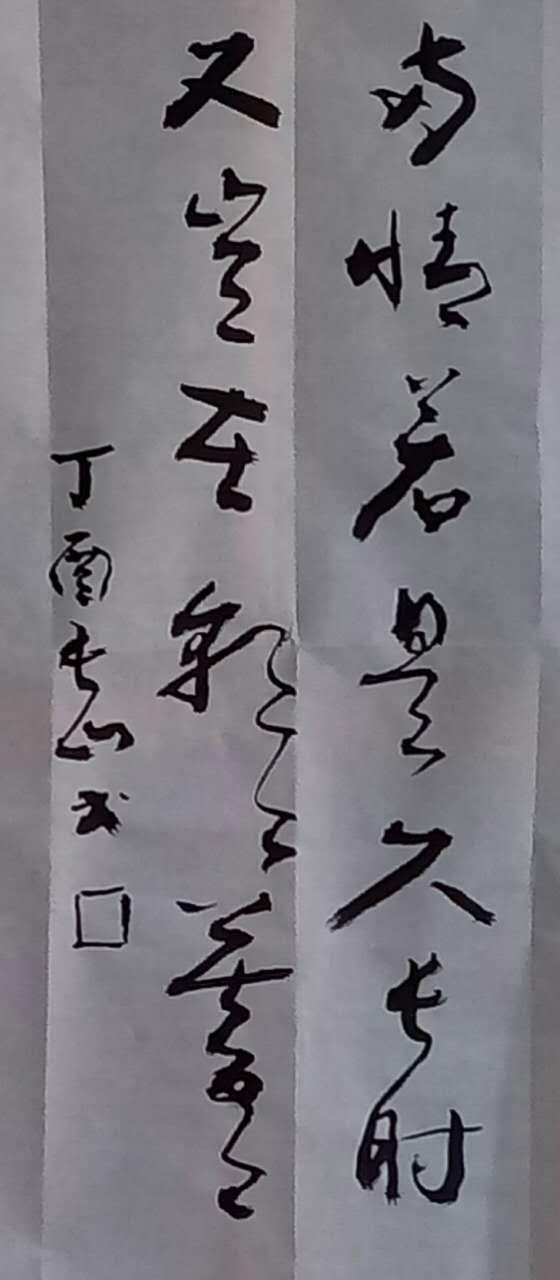 两情若是久长时
又岂在朝々暮々
丁酉长山书